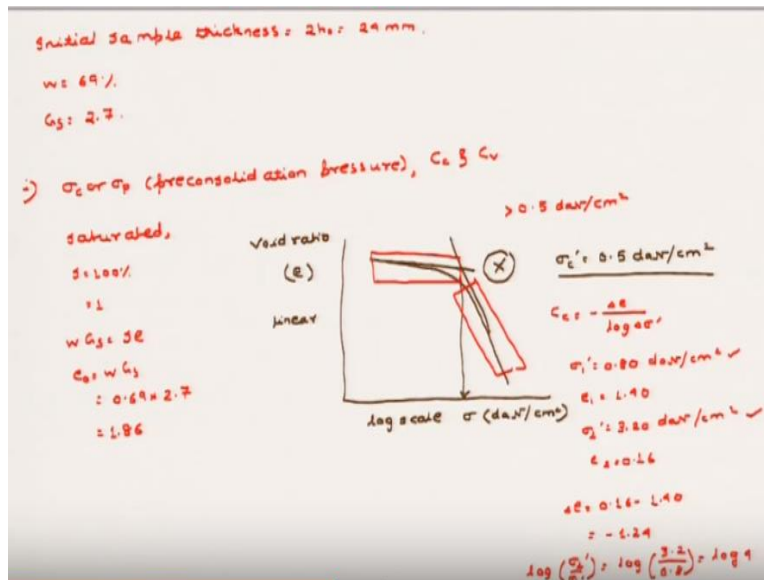 Initial sample thickness = 2h₀ = 24 mm.
w = 69%
Gs = 2.7.
i) σc or σp (preconsolidation pressure), Cc & Cv
saturated,
S = 100%
= 1
w Gs = Se
e₀ = w Gs
= 0.69 × 2.7
= 1.86
Void ratio
(e)
linear
X
log scale σ (daN/cm²)
> 0.5 daN/cm²
σc' = 0.5 daN/cm²
Cc = - Δe / log Δσ'
σ₁' = 0.80 daN/cm² ✓
e₁ = 1.40
σ₂' = 3.20 daN/cm² ✓
e₂ = 0.16
Δe = 0.16 - 1.40
= - 1.24
log (σ₂'/σ₁') = log (3.2/0.8) = log 4